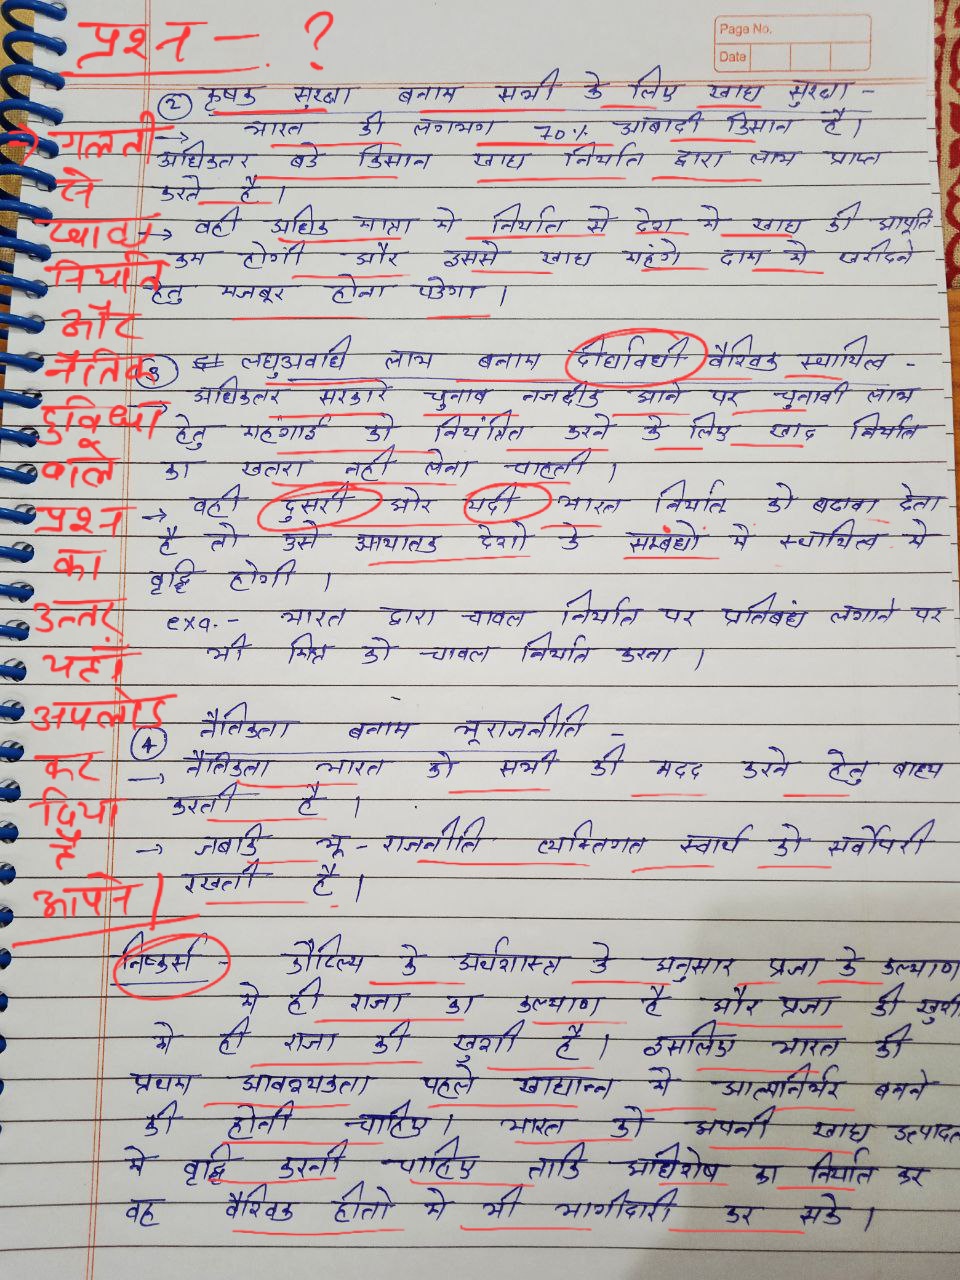 प्रश्न - ?
Page No.
Date
② कृषक सुरक्षा बनाम सभी के लिए खाद्य सुरक्षा -
→ भारत की लगभग 70% आबादी किसान है।
अधिकतर बडे किसान खाद्य निर्यात द्वारा लाभ प्राप्त
करते है।
→ वही अधिक मात्रा मे निर्यात से देश मे खाद्य की आपूर्ति
कम होगी और इससे खाद्य महंगे दाम मे खरीदने
हेतु मजबूर होना पडेगा।
③ लघुअवधि लाभ बनाम दीर्घावधी वैश्विक स्थायित्व -
→ अधिकतर सरकारे चुनाव नजदीक आने पर चुनावी लाभ
हेतु महंगाई को नियंत्रित करने के लिए खाद निर्यात
का खतरा नही लेना चाहती।
→ वही दुसरी ओर यदी भारत निर्यात को बढावा देता
है तो उसे आयातक देशो के सम्बंधों मे स्थायित्व मे
वृद्धि होगी।
exa. - भारत द्वारा चावल निर्यात पर प्रतिबंध लगाने पर
भी मित्र को चावल निर्यात करना।
④ नैतिकता बनाम भूराजनीति -
→ नैतिकता भारत को सभी की मदद करने हेतु बाध्य
करती है।
→ जबकि भू-राजनीति व्यक्तिगत स्वार्थ को सर्वोपरी
रखती है।
निष्कर्स - कौटिल्य के अर्थशास्त्र के अनुसार प्रजा के कल्याण
मे ही राजा का कल्याण है और प्रजा की खुशी
मे ही राजा की खुशी है। इसलिए भारत की
प्रथम आवश्यकता पहले खाद्यान्न मे आत्मनिर्भर बनने
की होनी चाहिए। भारत को अपनी खाद्य उत्पादन
मे वृद्धि करनी चाहिए ताकि अधिशेष का निर्यात कर
वह वैश्विक हीतो मे भी भागीदारी कर सके।
→ गलती
से
खाद्य
निर्यात
और
नैतिक
दुविधा
वाले
प्रश्न
का
उत्तर
यहाँ
अपलोड
कर
दिया
है
आपने।